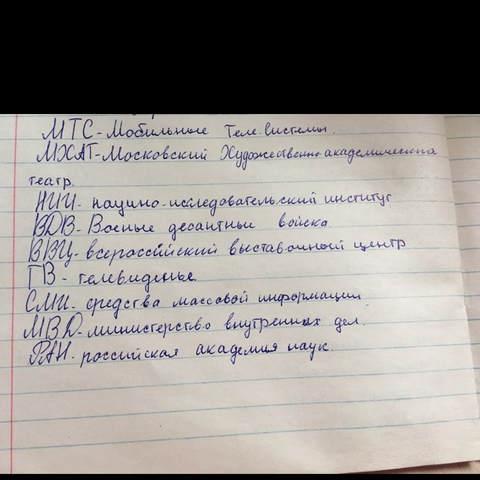 МТС-Мобильные Теле.Системы.
МХАТ-Московский Художественно академический
театр.
НИИ- научно-исследовательский институт
ВДВ- Военые десантные войска
ВВЦ- всероссийский выставочный центр
ТВ- телевиденье
СМИ- средства массовой информации.
МВД-министерство внутренных дел.
РАН- российская академия наук.